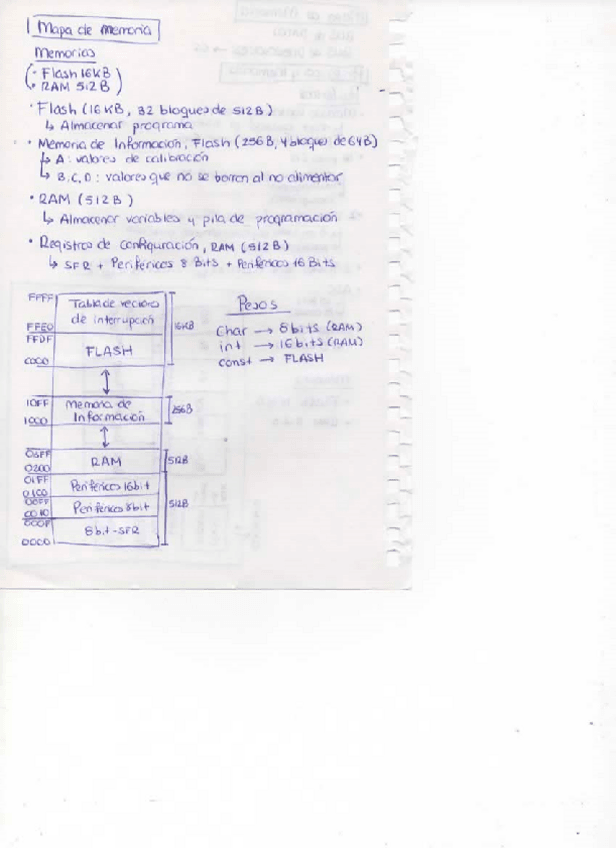 Mapa de memoria
Memorias
- Flash 16KB
- RAM 512B
· Flash (16 KB, 32 bloques de 512B)
↳ Almacenar programa
· Memoria de Información, Flash (256B, 4 bloques de 64B)
↳ A: valores de calibración
↳ B,C,D: valores que no se borran al no alimentar
· RAM (512B)
↳ Almacenar variables y pila de programación
· Registros de configuración, RAM (512B)
↳ SFR + Periféricos 8 Bits + Periféricos 16 Bits
FFFF Tabla de vectores
de interrupción
FFE0
16KB
FFDF
FLASH
C000
10FF Memoria de
Información 256B
1000
03FF
RAM 512B
0200
01FF
Periféricos 16bit
0100
00FF
Periféricos 8bit 512B
0010
000F
8bit-SFR
0000
Pesos
char → 8bits (RAM)
int → 16bits (RAM)
const → FLASH